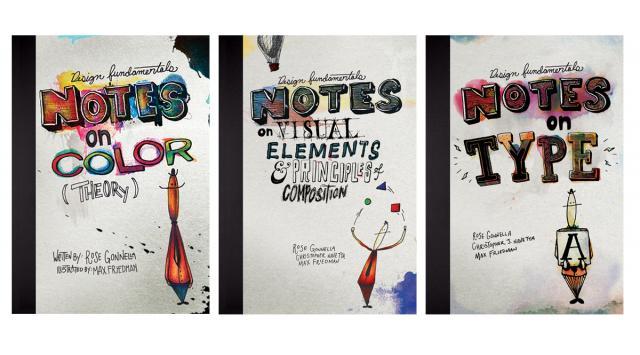 Design fundamentals
NOTES
on
COLOR
(THEORY)
WRITTEN BY: ROSE GONNELLA
ILLUSTRATED BY: MAX FRIEDMAN
Design fundamentals
NOTES
on VISUAL
ELEMENTS
& PRINCIPLES of
COMPOSITION
ROSE GONNELLA
CHRISTOPHER NAVETTA
MAX FRIEDMAN
Design fundamentals
NOTES
on
TYPE
ROSE GONNELLA
CHRISTOPHER J. NAVETTA
MAX FRIEDMAN
A